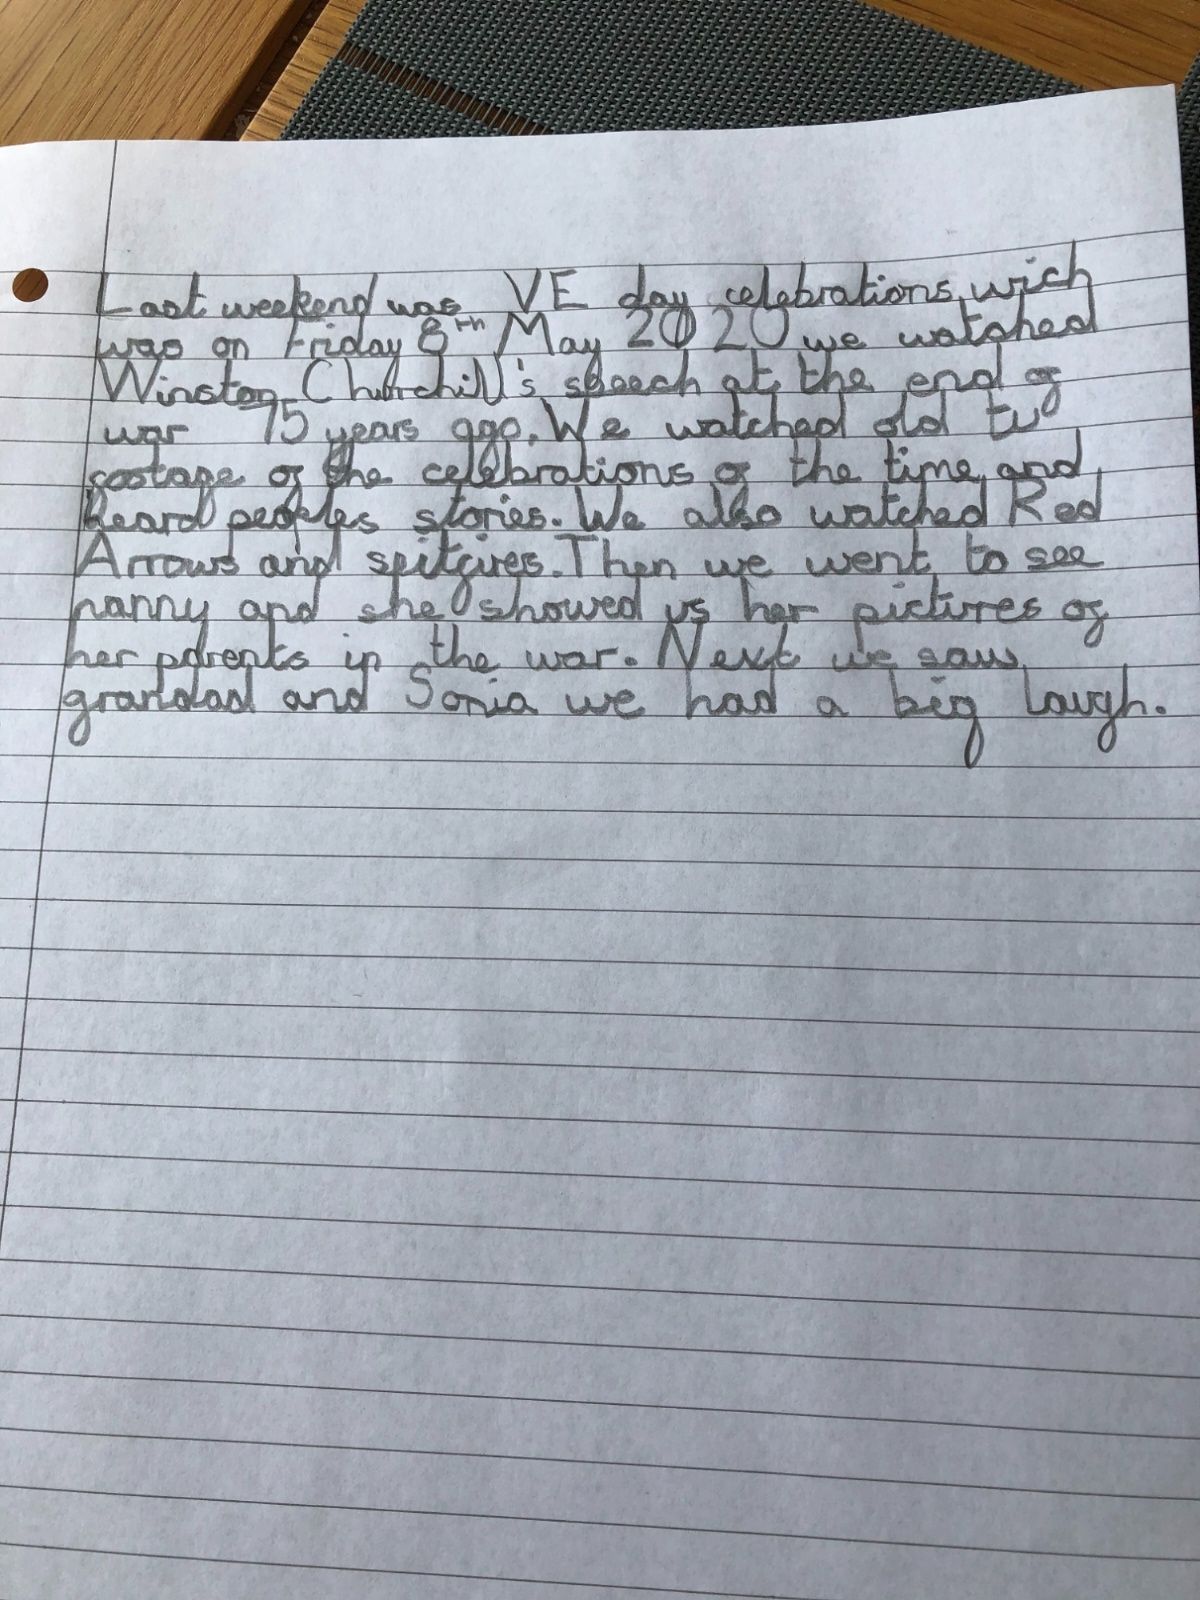 Last weekend was VE day celebrations, wich
was on Friday 8th May 2020 we watched
Winston Churchill's speech at the end of
war 75 years ago. We watched old tv
footage of the celebrations of the time and
heard peoples stories. We also watched Red
Arrows and spitfires. Then we went to see
nanny and she showed us her pictures of
her parents in the war. Next we saw
grandad and Sonia we had a big laugh.